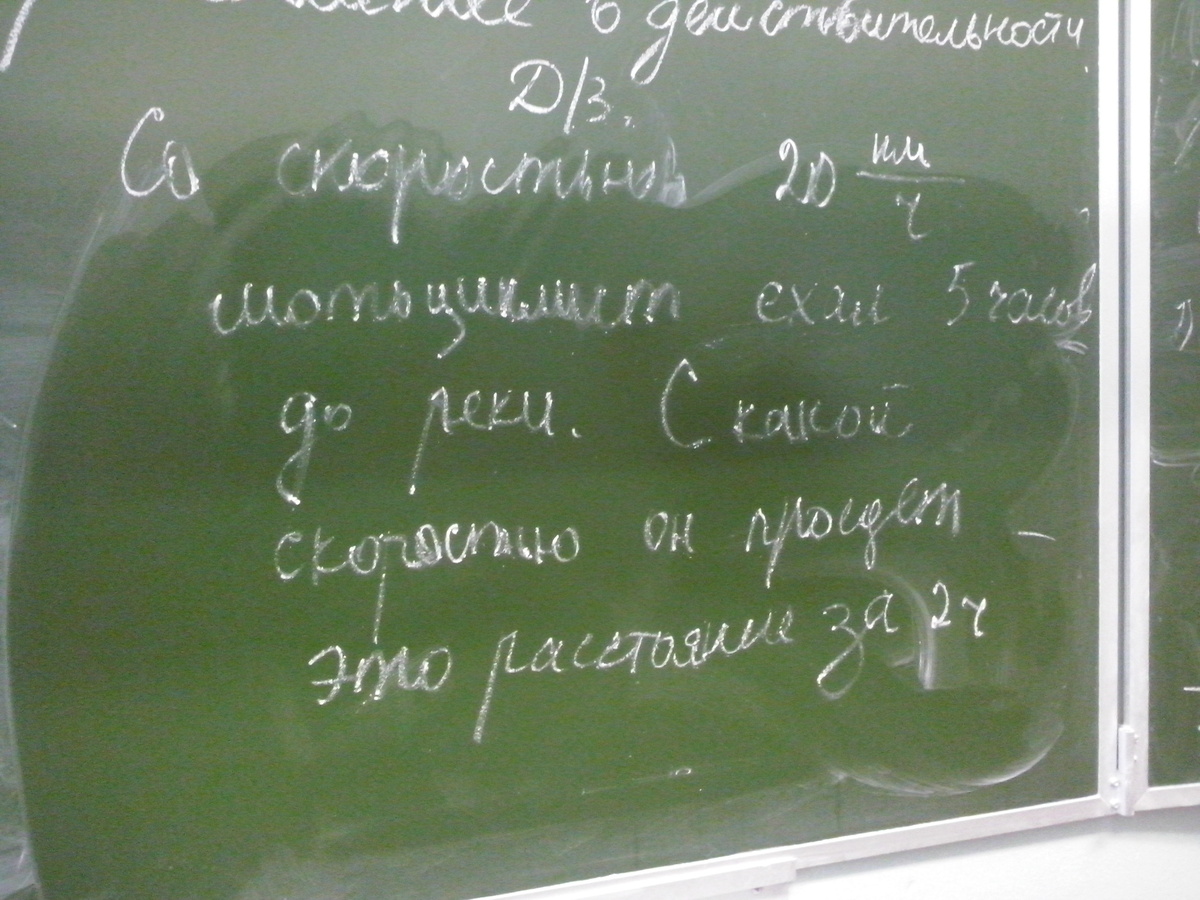 в действительности
Д/З.
Со скоростью 20 км/ч
мотоциклист ехал 5 часов
до реки. С какой
скоростью он проедет
это расстояние за 2ч